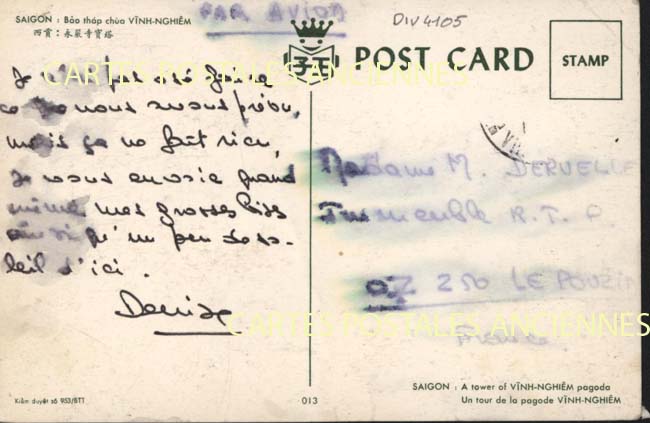 SAIGON : Bảo tháp chùa VĨNH-NGHIÊM
西貢：永嚴寺寶塔
PAR AVION
DIV4105
POST CARD
STAMP
CARTES POSTALES ANCIENNES
Je n'ai pas été
ce que nous avons prévu,
mais ça ne fait rien,
Je vous envoie quand
même mes grosses bises
ainsi qu'un peu de so-
leil d'ici.
Denise
Madame M. DERVELLE
Immeuble R.T.
07 250 LE POUZIN
France
CARTES POSTALES ANCIENNES
Kiểm duyệt số 953/BTT
013
SAIGON : A tower of VĨNH-NGHIÊM pagoda
Un tour de la pagode VĨNH-NGHIÊM